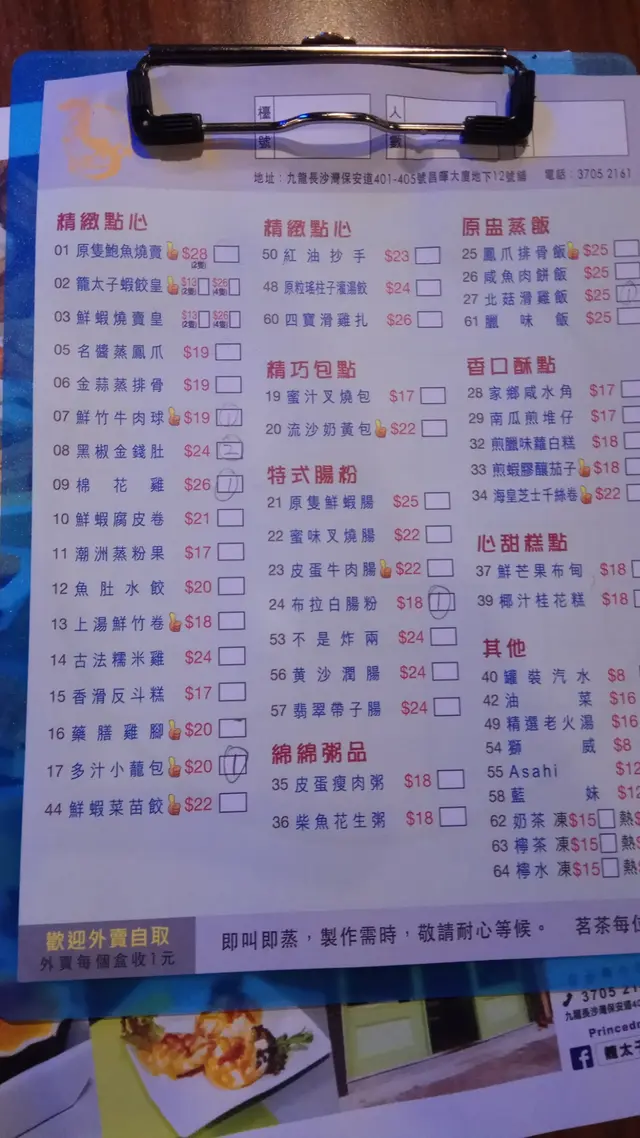 檯號
人數
地址：九龍長沙灣保安道401-405號昌暉大廈地下12號舖 電話：3705 2161
精緻點心
01 原隻鮑魚燒賣 $28 (2隻)
02 籠太子蝦餃皇 $13 (2隻) $26 (4隻)
03 鮮蝦燒賣皇 $13 (2隻) $26 (4隻)
05 名醬蒸鳳爪 $19
06 金蒜蒸排骨 $19
07 鮮竹牛肉球 $19 1
08 黑椒金錢肚 $24 2
09 棉花雞 $26 1
10 鮮蝦腐皮卷 $21
11 潮洲蒸粉果 $17
12 魚肚水餃 $20
13 上湯鮮竹卷 $18
14 古法糯米雞 $24
15 香滑反斗糕 $17
16 藥膳雞腳 $20
17 多汁小籠包 $20 1
44 鮮蝦菜苗餃 $22
精緻點心
50 紅油抄手 $23
48 原粒瑤柱子灌湯餃 $24
60 四寶滑雞扎 $26
精巧包點
19 蜜汁叉燒包 $17
20 流沙奶黃包 $22
特式腸粉
21 原隻鮮蝦腸 $25
22 蜜味叉燒腸 $22
23 皮蛋牛肉腸 $22
24 布拉白腸粉 $18 1
53 不是炸兩 $24
56 黄沙潤腸 $24
57 翡翠帶子腸 $24
綿綿粥品
35 皮蛋瘦肉粥 $18
36 柴魚花生粥 $18
原盅蒸飯
25 鳳爪排骨飯 $25
26 咸魚肉餅飯 $25
27 北菇滑雞飯 $25 1
61 臘味飯 $25
香口酥點
28 家鄉咸水角 $17
29 南瓜煎堆仔 $17
32 煎臘味蘿白糕 $18
33 煎蝦膠釀茄子 $18
34 海皇芝士千絲卷 $22
心甜糕點
37 鮮芒果布甸 $18
39 椰汁桂花糕 $18
其他
40 罐裝汽水 $8
42 油菜 $16
49 精選老火湯 $16
54 獅威 $8
55 Asahi $12
58 藍妹 $12
62 奶茶 凍$15 熱$
63 檸茶 凍$15 熱$
64 檸水 凍$15 熱$
歡迎外賣自取
外賣每個盒收1元
即叫即蒸，製作需時，敬請耐心等候。 茗茶每位
3705 2
九龍長沙灣保安道40
Princed
籠太子